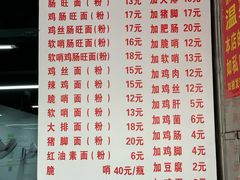 肠旺面(粉) 13元
鸡肠旺面(粉) 16元 加猪脚 17元
鸡丝肠旺面(粉) 17元 加肥肠 20元
软哨肠旺面(粉) 17元 加脆哨 12元
软哨鸡肠旺面(粉) 18元 加软哨 13元
鸡丝面(粉) 15元 加鸡肉 12元
辣鸡面(粉) 15元 加鸡丝 12元
脆哨面(粉) 12元 加鸡肝 5元
软哨面(粉) 13元 加鸡菌 6元
大排面(粉) 18元 加鸡肠 4元
猪脚面(粉) 20元 加鸡蛋 2元
红油素面(粉) 6元 加豆腐 2元
脆哨 40元/瓶
温
本店
如私